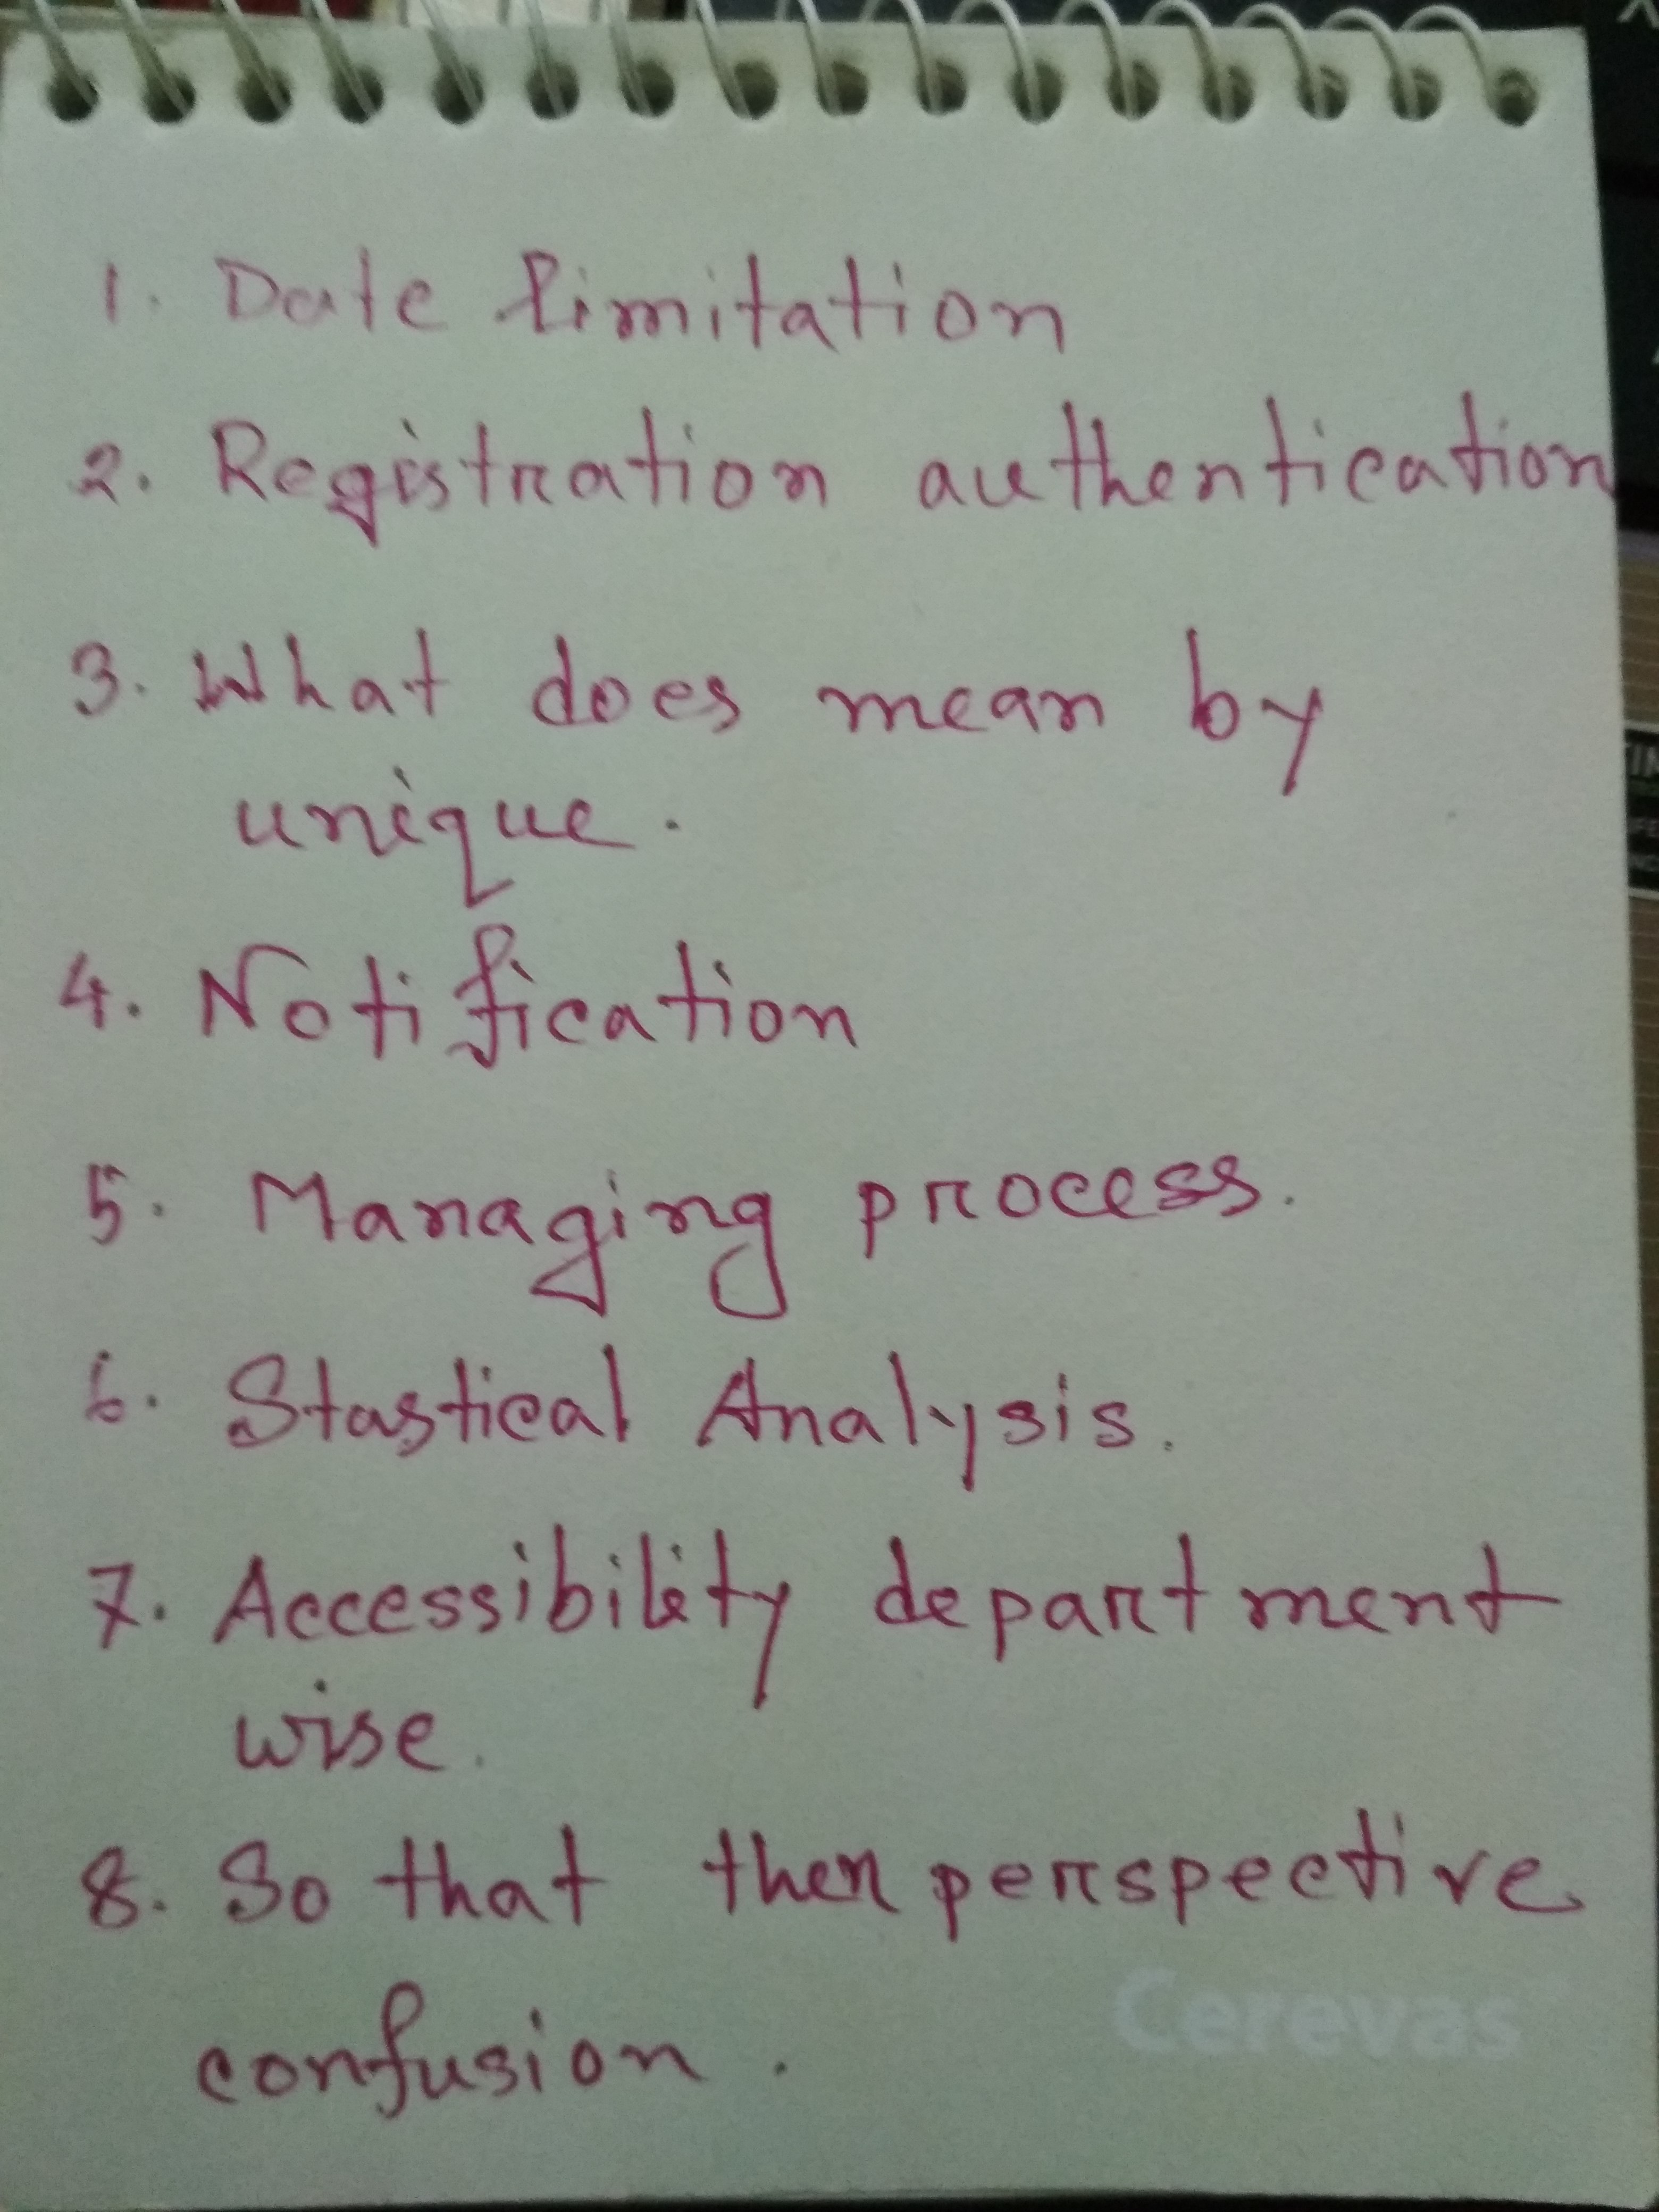 1. Date limitation
2. Registration authentication
3. What does mean by
unique.
4. Notification
5. Managing process.
6. Stastical Analysis.
7. Accessibility department
wise.
8. So that then perspective
confusion.
Cerevas